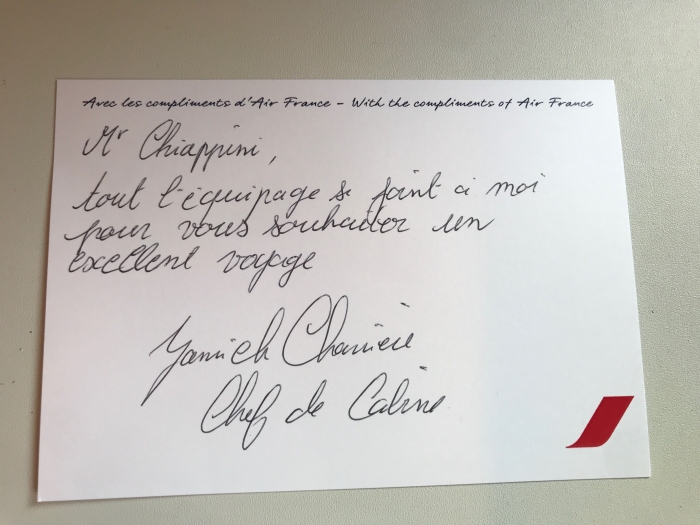 Avec les compliments d'Air France - With the compliments of Air France
Mr Chiappini,
tout l'équipage se joint à moi
pour vous souhaiter un
excellent voyage
Yannick Charrière
Chef de Cabine